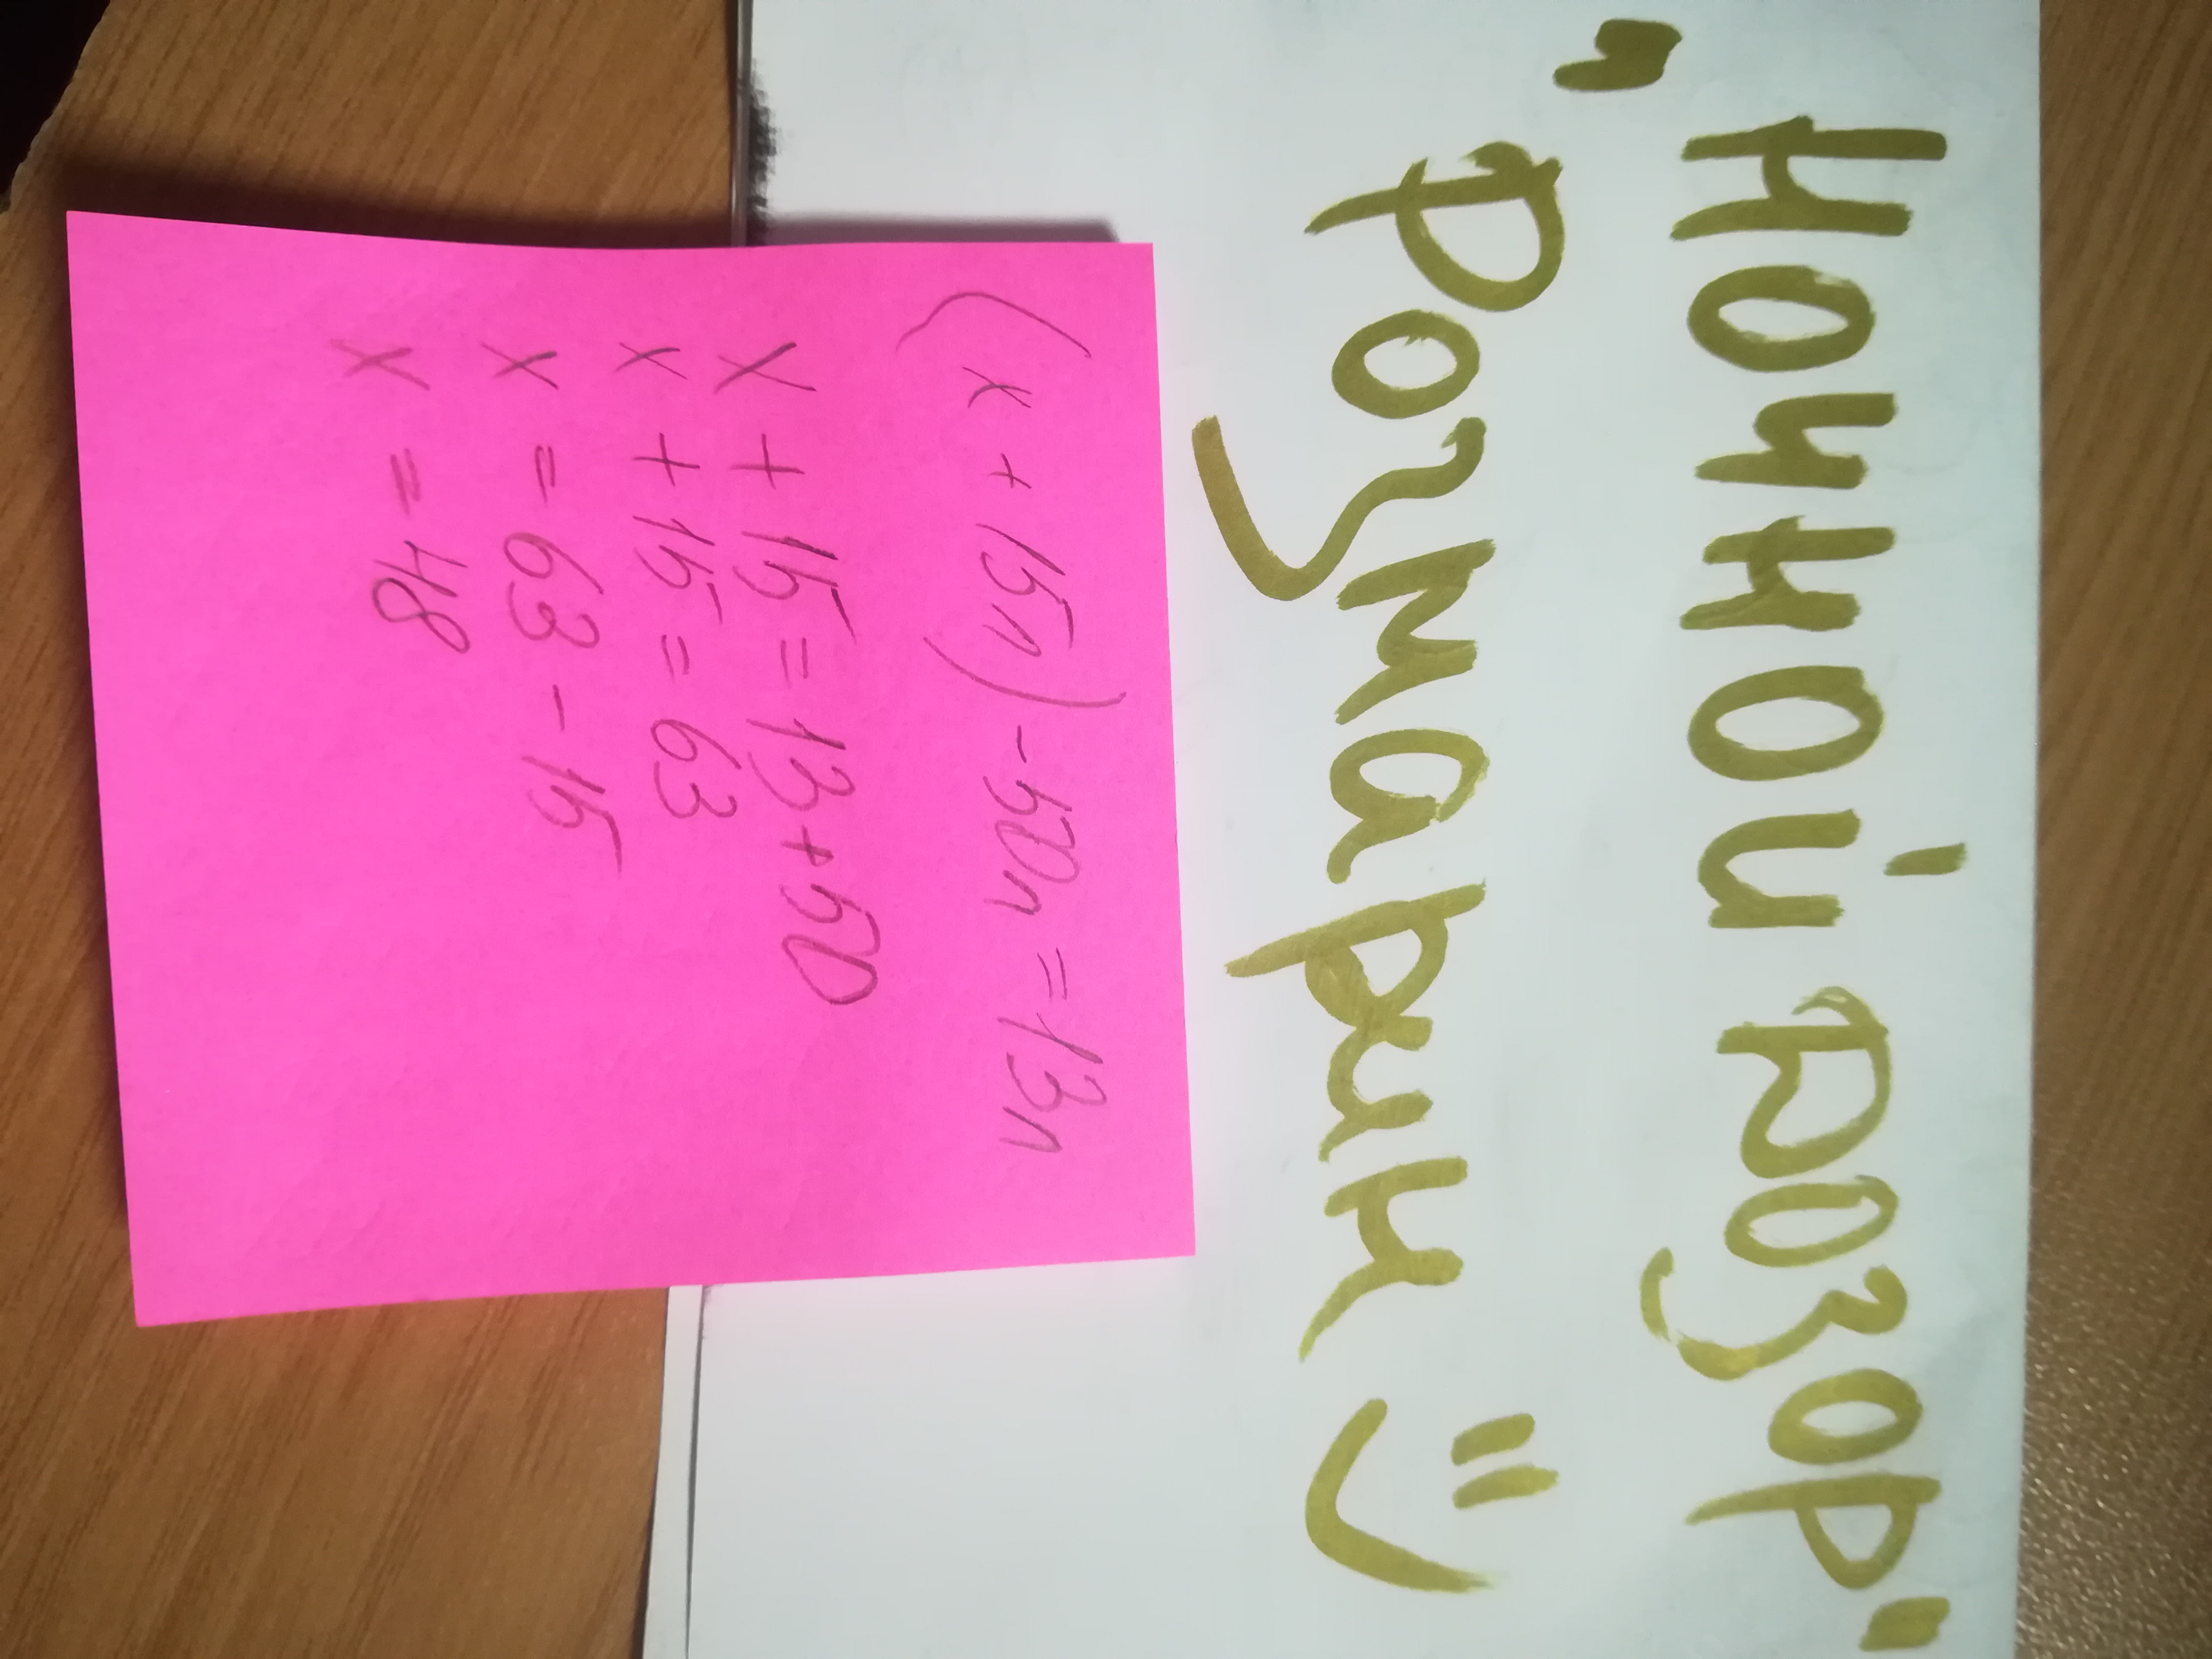 „Ночной Дозор"
Розмарин
(x + 15л) - 50л = 13л
x + 15 = 13 + 50
x + 15 = 63
x = 63 - 15
x = 48